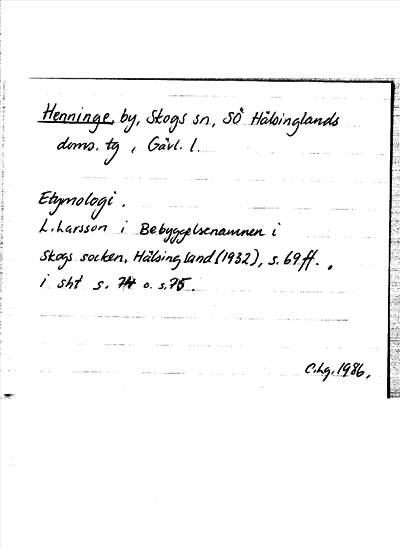 Henninge, by, Skogs sn, SÖ Hälsinglands
doms. tg, Gävl. l.
Etymologi.
L. Larsson i Bebyggelsenamnen i
Skogs socken, Hälsingland (1932), s. 69 ff.
i sht s. 74 o. s. 75.
C. Lg. 1986.